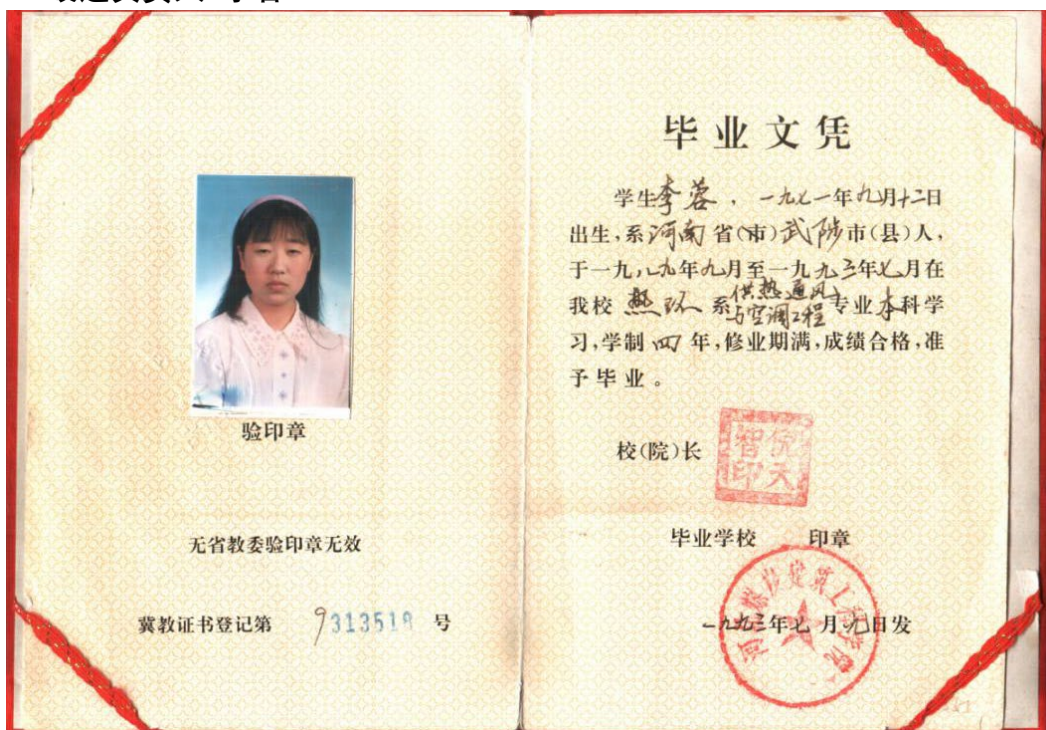 验印章
无省教委验印章无效
冀教证书登记第 9313518 号
毕业文凭
学生李蓉，一九七一年九月十二日
出生，系河南省（市）武陟市（县）人，
于一九八九年九月至一九九三年七月在
我校 热环 系 供热通风与空调工程 专业本科学
习，学制四年，修业期满，成绩合格，准
予毕业。
校（院）长
倪天智印
毕业学校 印章
建筑工程学院
一九九三年七月九日发